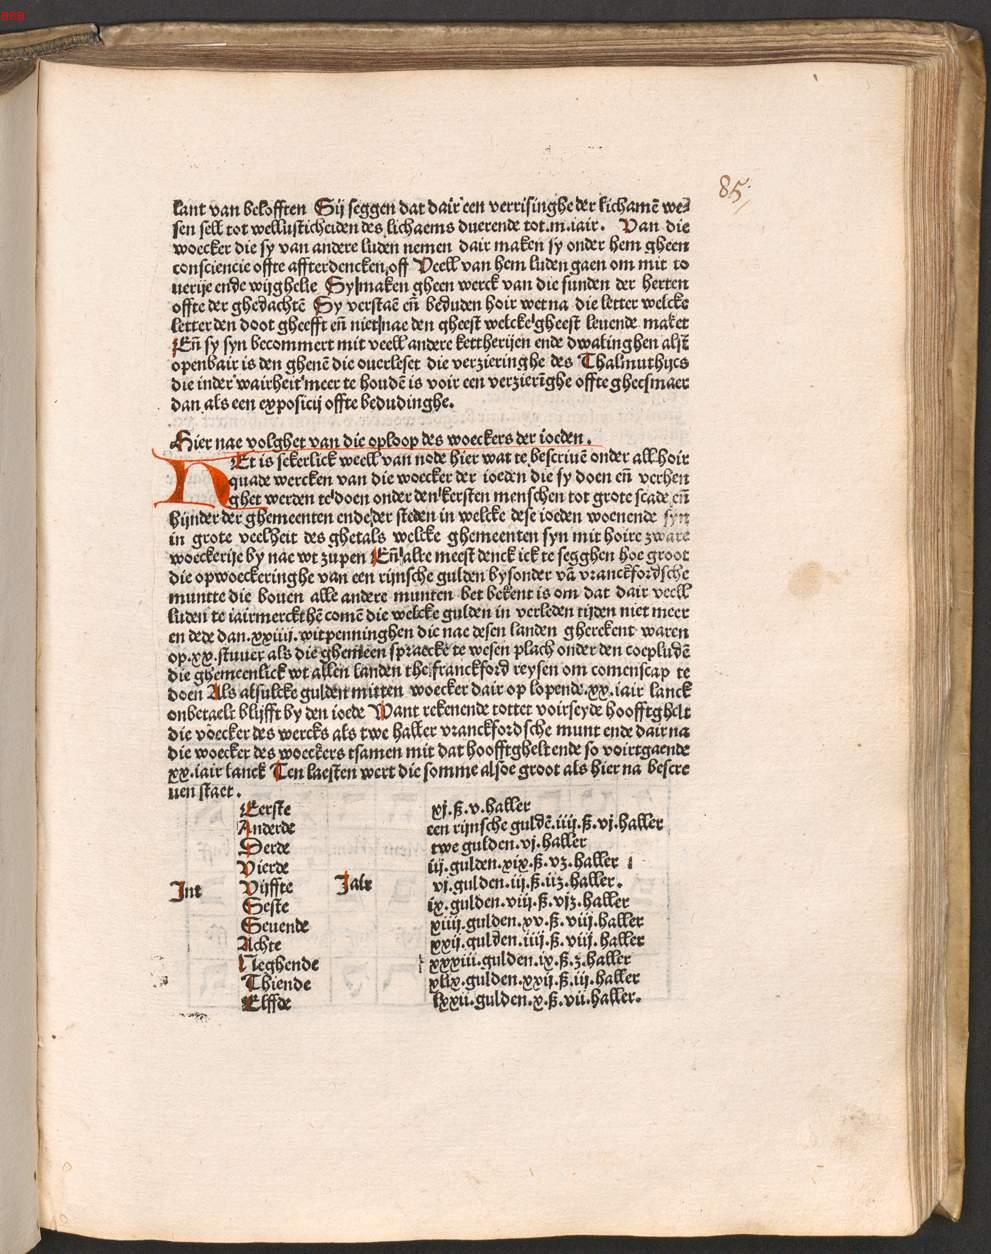 868
85.
lant van belofften Sij seggen dat dair een verrisinghe der lichamē we⸗
sen sell tot wellusticheiden des lichaems duerende tot.m.iair. Van die
woecker die sy van andere luden nemen dair maken sy onder hem gheen
consciencie offte affterdencken, off Veell van hem luden gaen om mit to
uerije ende wijghelie Sy maken gheen werck van die sunden der herten
offte der ghedachtē Sy verstaē eñ beduden hoir wet na die letter welcke
letter den doot gheefft eñ niet nae den gheest welcke gheest leuende maket
Eñ sy syn becommert mit veell andere kettherijen ende dwalinghen alst̄
openbair is den ghenē die ouerleset die verzieringhe des Thalmuthijcs
die in der wairheit meer te houdē is voir een verzierīghe offte ghecsmaer
dan als een exposicij offte bedudinghe.
Hier nae volghet van die oploop des woeckers der ioeden.
HEt is sekerlick weell van node hier wat te bescriuē onder all hoir
quade wercken van die woecker der ioeden die sy doen eñ verhen
ghet werden te doen onder den kersten menschen tot grote scade eñ
hijnder der ghemeenten ende der steden in welcke dese ioeden woenende syn
in grote veelheit des ghetals welcke ghemeenten syn mit hoire zware
woeckerije by nae wt zupen Eñ alre meest denck ick te segghen hoe groot
die opwoeckeringhe van een rijnsche gulden bysonder vā vranckfordsche
muntte die bouen alle andere munten bet bekent is om dat dair veell
luden te iairmerckt hē comē die welcke gulden in verleden tijden niet meer
en dede dan.xxiiij.witpenninghen die nae desen landen gherekent waren
op.xx.stuuer als die ghemeen spraecke te wesen plach onder den coepludē
die ghemeenlick wt allen landen the franckford reysen om comenscap te
doen Als alsulcke gulden mitten woecker dair op lopende.xx.iair lanck
onbetaelt blijfft by den ioede Want rekenende tottet voirseyde hoofftghelt
die voecker des wercks als twe haller vranckfordsche munt ende dair na
die woecker des woeckers tsamen mit dat hoofftghelt ende so voirtgaende
xx.iair lanck Ten laesten wert die somme alsoe groot als hier na bescre
uen staet.
Eerste xj.ß.v.haller
Anderde een rijnsche guldē.iiij.ß.vj.haller
Derde twe gulden.vj.haller
Vierde iij.gulden.xix.ß.vʒ.haller
Int Vijffte Jair vj.gulden.iij.ß.iiʒ.haller.
Seste ix.gulden.viij.ß.vjʒ.haller
Seuende xiiij.gulden.xv.ß.viij.haller
Achte xxij.gulden.iiij.ß.viij.haller
Neghende xxxiii.gulden.ix.ß.ʒ.haller
Thiende xlix.gulden.xxij.ß.iij.haller
Elffde lxxii.gulden.x.ß.vii.haller.